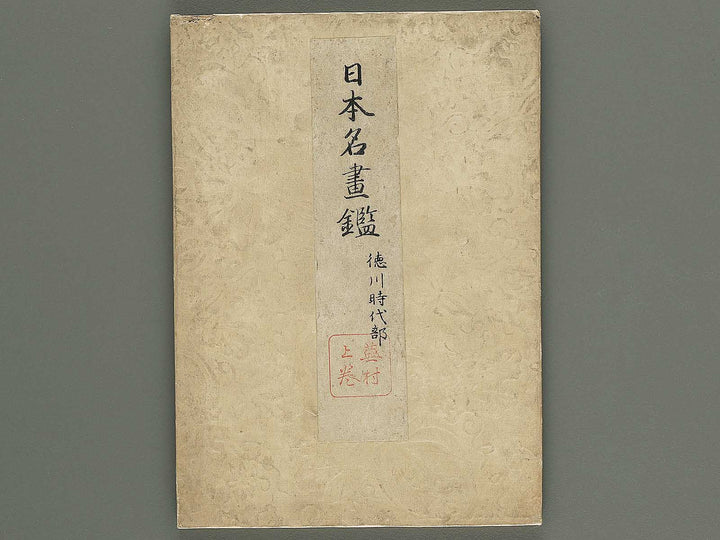 日本名畫鑑
徳川時代部
蕪村
上巻